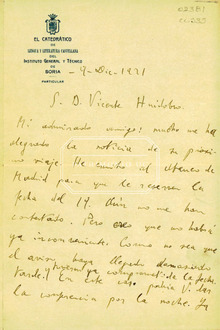 EL CATEDRÁTICO
DE
LENGUA Y LITERATURA CASTELLANA
DEL
INSTITUTO GENERAL Y TÉCNICO
DE
SORIA
PARTICULAR
9-Dic-1921
S. D. Vicente Huidobro.
Mi admirado amigo: mucho me ha
alegrado la noticia de su próximo
viaje. He escrito al Ateneo de
Madrid para que le reserven la
fecha del 19. Aún no me han
contestado. Pero creo que no habrá
ya inconveniente. Como no sea que
el aviso haya llegado demasiado
tarde y tuvieran ya comprometida la fecha.
En este caso podría Vd. dar
la conferencia por la noche. Ya